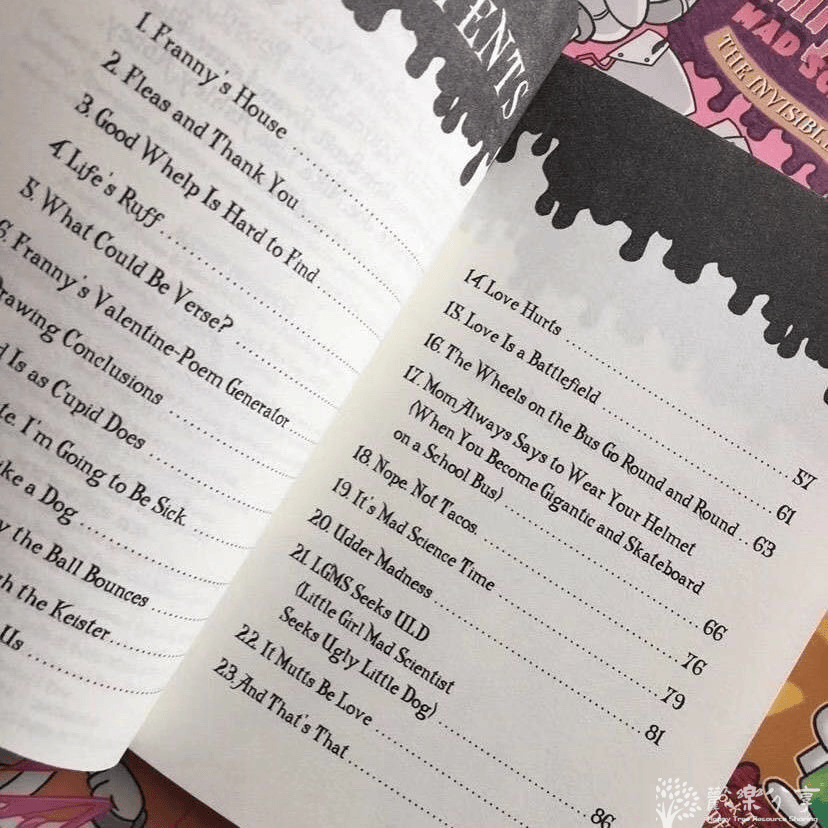 TENTS
1. Franny's House
2. Fleas and Thank You
3. Good Whelp Is Hard to Find
4. Life's Ruff
5. What Could Be Verse?
6. Franny's Valentine-Poem Generator
Drawing Conclusions
Is as Cupid Does
I'm Going to Be Sick
a Dog
the Ball Bounces
the Keister
Us
14. Love Hurts 57
15. Love Is a Battlefield 61
16. The Wheels on the Bus Go Round and Round 63
17. Mom Always Says to Wear Your Helmet
(When You Become Gigantic and Skateboard
on a School Bus) 66
18. Nope. Not Tacos. 76
19. It's Mad Science Time 79
20. Udder Madness 81
21. LGMS Seeks ULD
(Little Girl Mad Scientist
Seeks Ugly Little Dog) 86
22. It Mutts Be Love
23. And That's That
MAD
THE INVISIBLE
歡樂分享
Happy Tree Resource Sharing